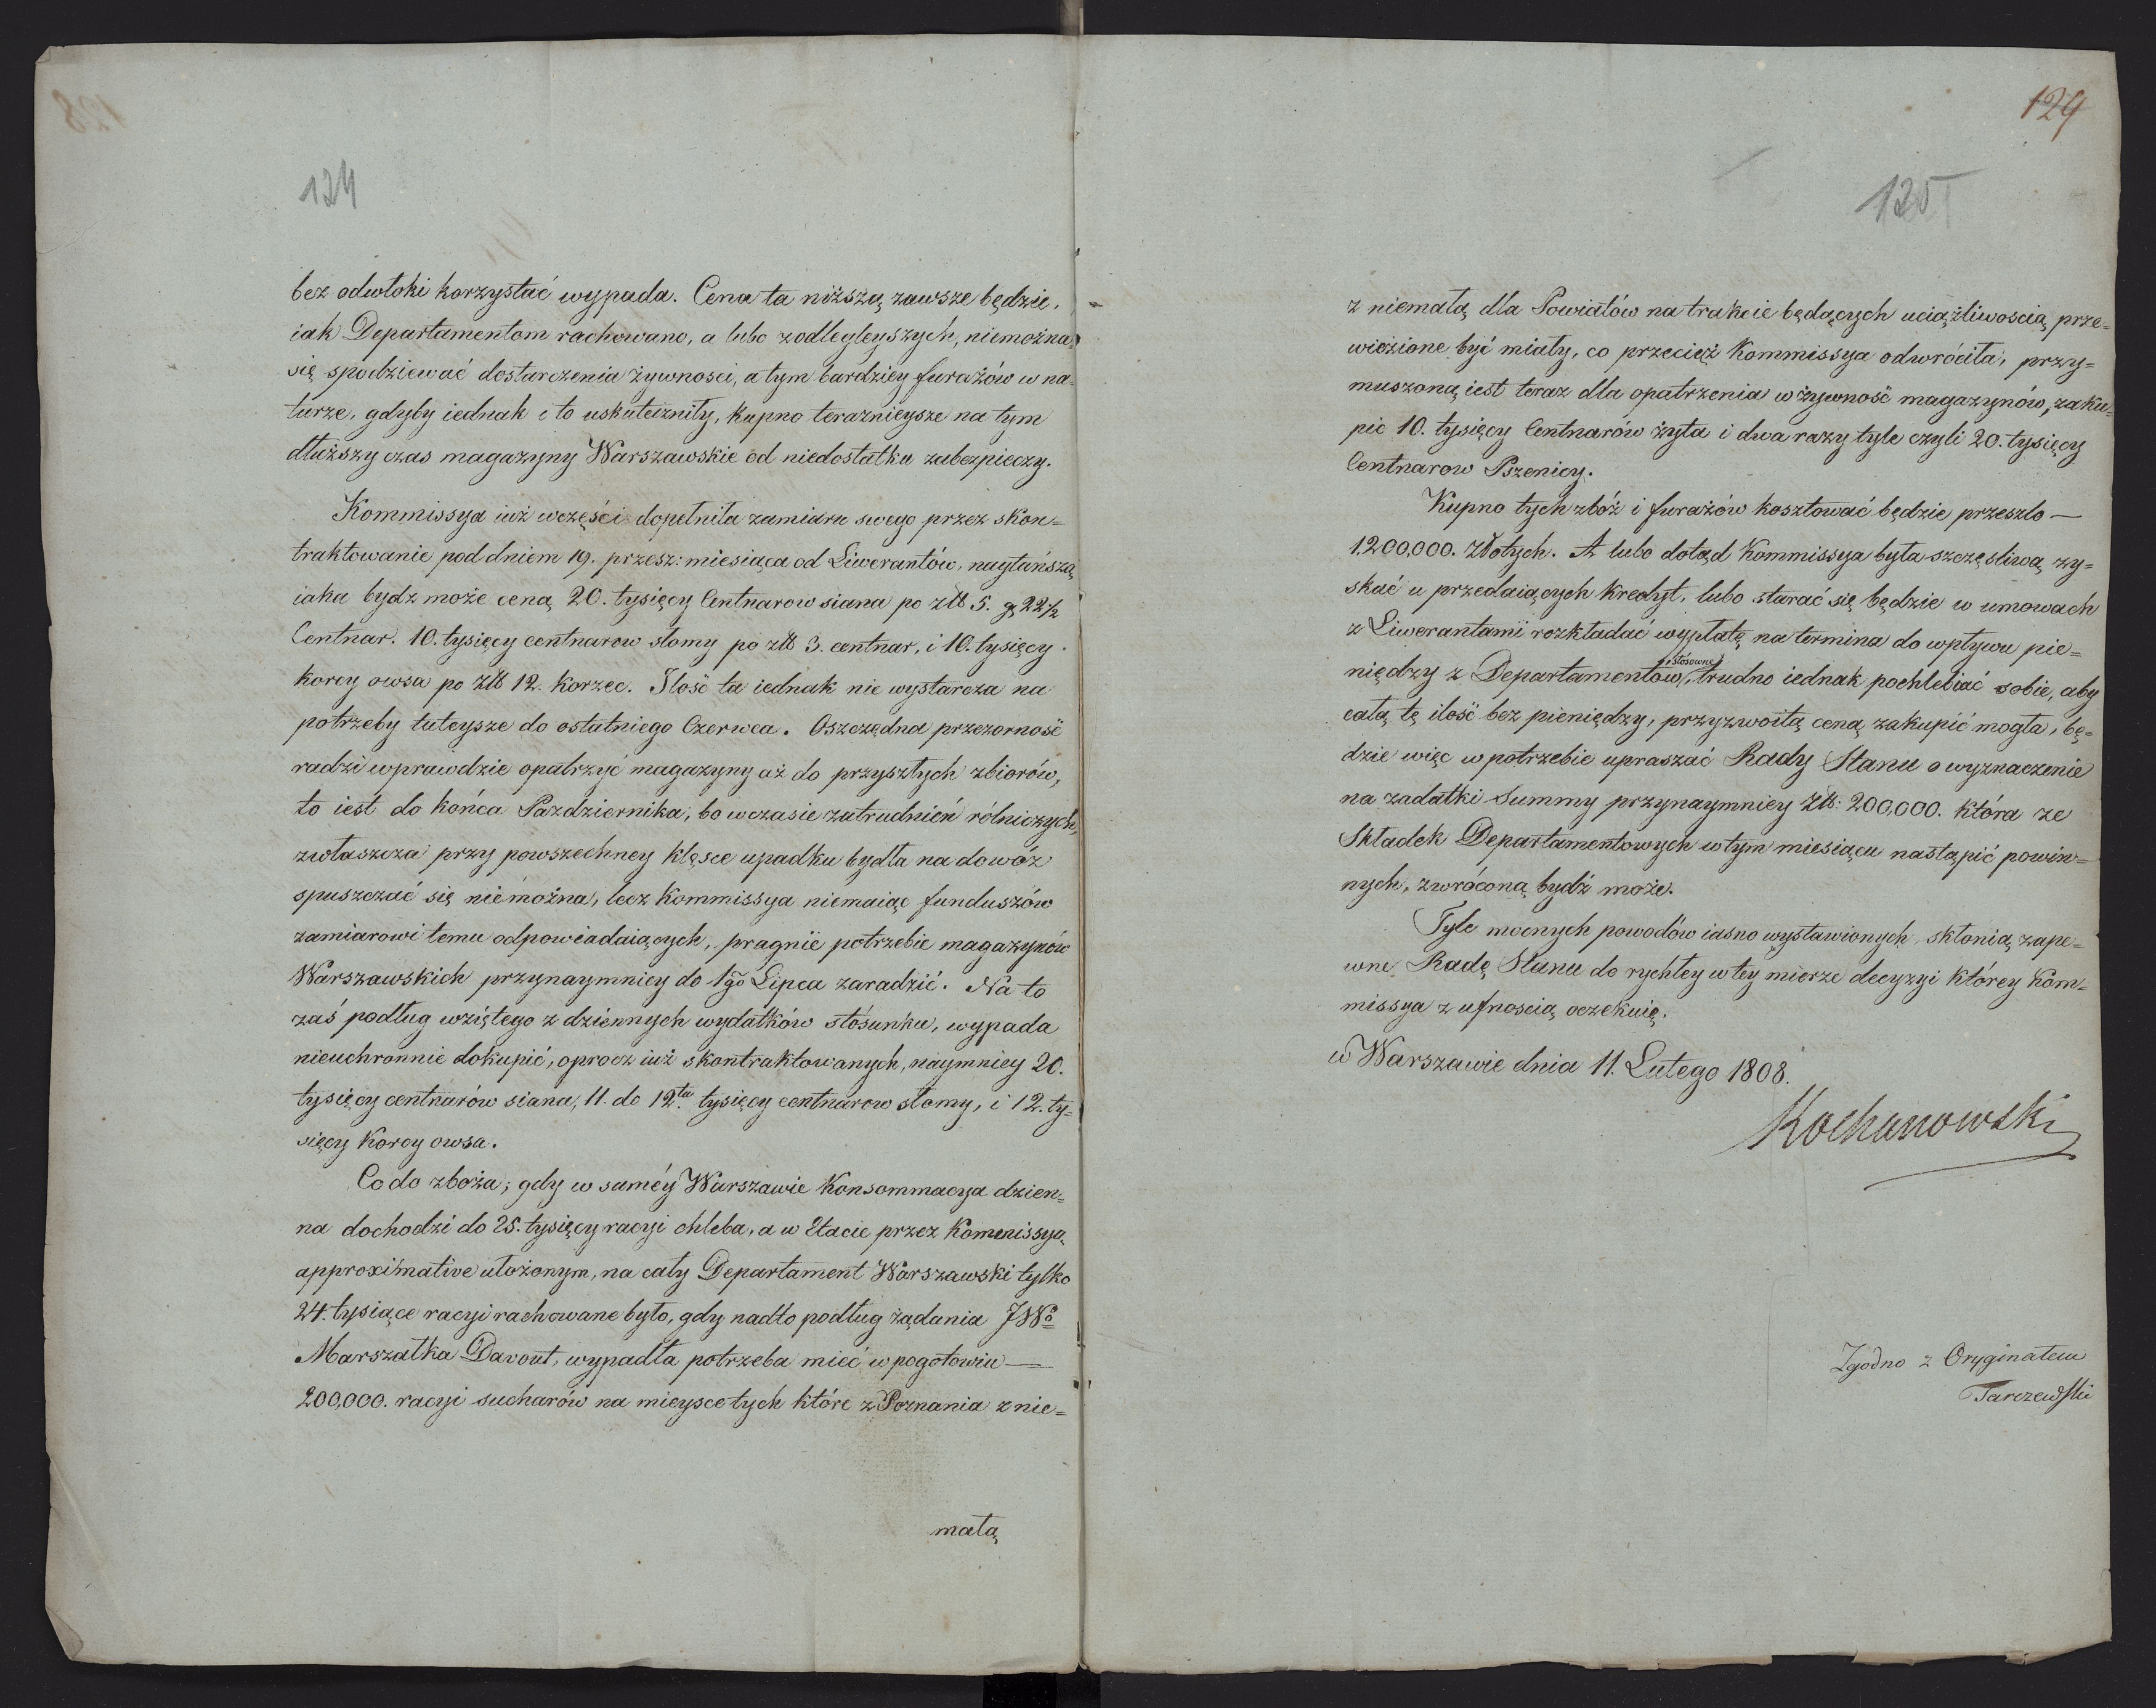 124
bez odwłoki korzystać wypada. Cena ta niższą zawsze będzie,
iak Departamentom rachowano, a lubo z odlegleyszych, niemożna
się spodziewać dostarczenia żywnosci, a tym bardziey furażów w na=
turze, gdyby iednak i to uskuteczniły, kupno teraznieysze na tym
dłuższy czas magazyny Warszawskie od niedostatku zabezpieczy.
Kommissya iuż wczęści dopełniła zamiaru swego przez skon=
traktowanie pod dniem 19. przesz: miesiąca od Liwerantów, naytańszą
iaka bydz może ceną 20. tysięcy Centnarow siana po złł 5. g 22½
Centnar. 10. tysięcy centnarow słomy po złł 3. centnar, i 10. tysięcy
korcy owsa po złł 12. korzec. Ilość ta iednak nie wystarcza na
potrzeby tuteysze do ostatniego Czerwca. Oszczędna przezorność
radzi wprawdzie opatrzyć magazyny aż do przyszłych zbiorów,
to iest do końca Pazdziernika, bo wczasie zatrudnień rólniczych,
zwłaszcza przy powszechney klęsce upadku bydła na dowóz
spuszczać się niemożna, lecz Kommissya niemaiąc funduszów
zamiarowi temu odpowiadaiących, pragnie potrzebie magazynów
Warszawskich przynaymniey do 1go Lipca zaradzić. Na to
zaś podług wziętego z dziennych wydatków stósunku, wypada
nieuchronnie dokupić, oprocz iuż skontraktowanych, naymniey 20.
tysięcy centnarów siana, 11. do 12.tu tysięcy centnarow słomy, i 12. ty=
sięcy Korcy owsa.
Co do zboża; gdy w saméy Warszawie Konsommacya dzien=
na dochodzi do 25. tysięcy racyi chleba, a w Etacie przez Kommissyą
approximative ułożonym, na cały Departament Warszawski tylko
24. tysiące racyi rachowane było, gdy nadto podług żądania JWo
Marszałka Davout, wypadła potrzeba mieć w pogotowiu —
200,000. racyi sucharów na mieysce tych które z Poznania z nie=
małą
129
125
z niemałą dla Powiatów na trakcie będących uciążliwoscią prze=
wiezione być miały, co przecięż Kommissya odwróciła, przy=
muszoną iest teraz dla opatrzenia w żywność magazynów, zaku=
pic 10. tysięcy Centnarów żyta i dwa razy tyle czyli 20. tysięcy
Centnarow Pszenicy.
Kupno tych zbóż i furażów kosztować będzie przeszlo —
1,200,000. Złotych. A lubo dotąd Kommissya była szczęsliwą zy=
skać u przedaiących kredyt, lubo starać się będzie w umowach
z Liwerantami rozkładać wypłatę na termina do wpływu pie=
stósowne
niędzy z Departamentów, trudno iednak pochlebiać sobie, aby
całą tę ilość bez pieniędzy, przyzwoitą ceną zakupić mogła, bę=
dzie więc w potrzebie upraszać Rady Stanu o wyznaczenie
na zadatki Summy przynaymniey Złł: 200,000. która ze
Składek Departamentowych w tym miesiącu nastąpić powin=
nych, zwróconą bydź może.
Tyle mocnych powodów iasno wystawionych, skłonią zape=
wne Radę Stanu do rychłey w tey mierze decyzyi którey Kom=
missya z ufnoscią oczekuię.
w Warszawie dnia 11. Lutego 1808.
Kochanowski
Zgodno z Oryginałem
Tarczewski